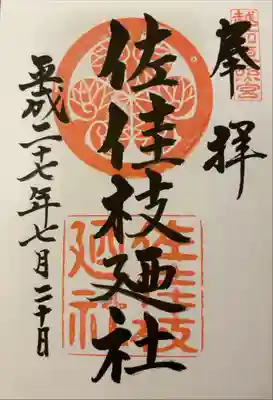 越前東照宮
奉拝
佐佳枝廼社
佐佳枝
廼社
平成二十七年七月二十日